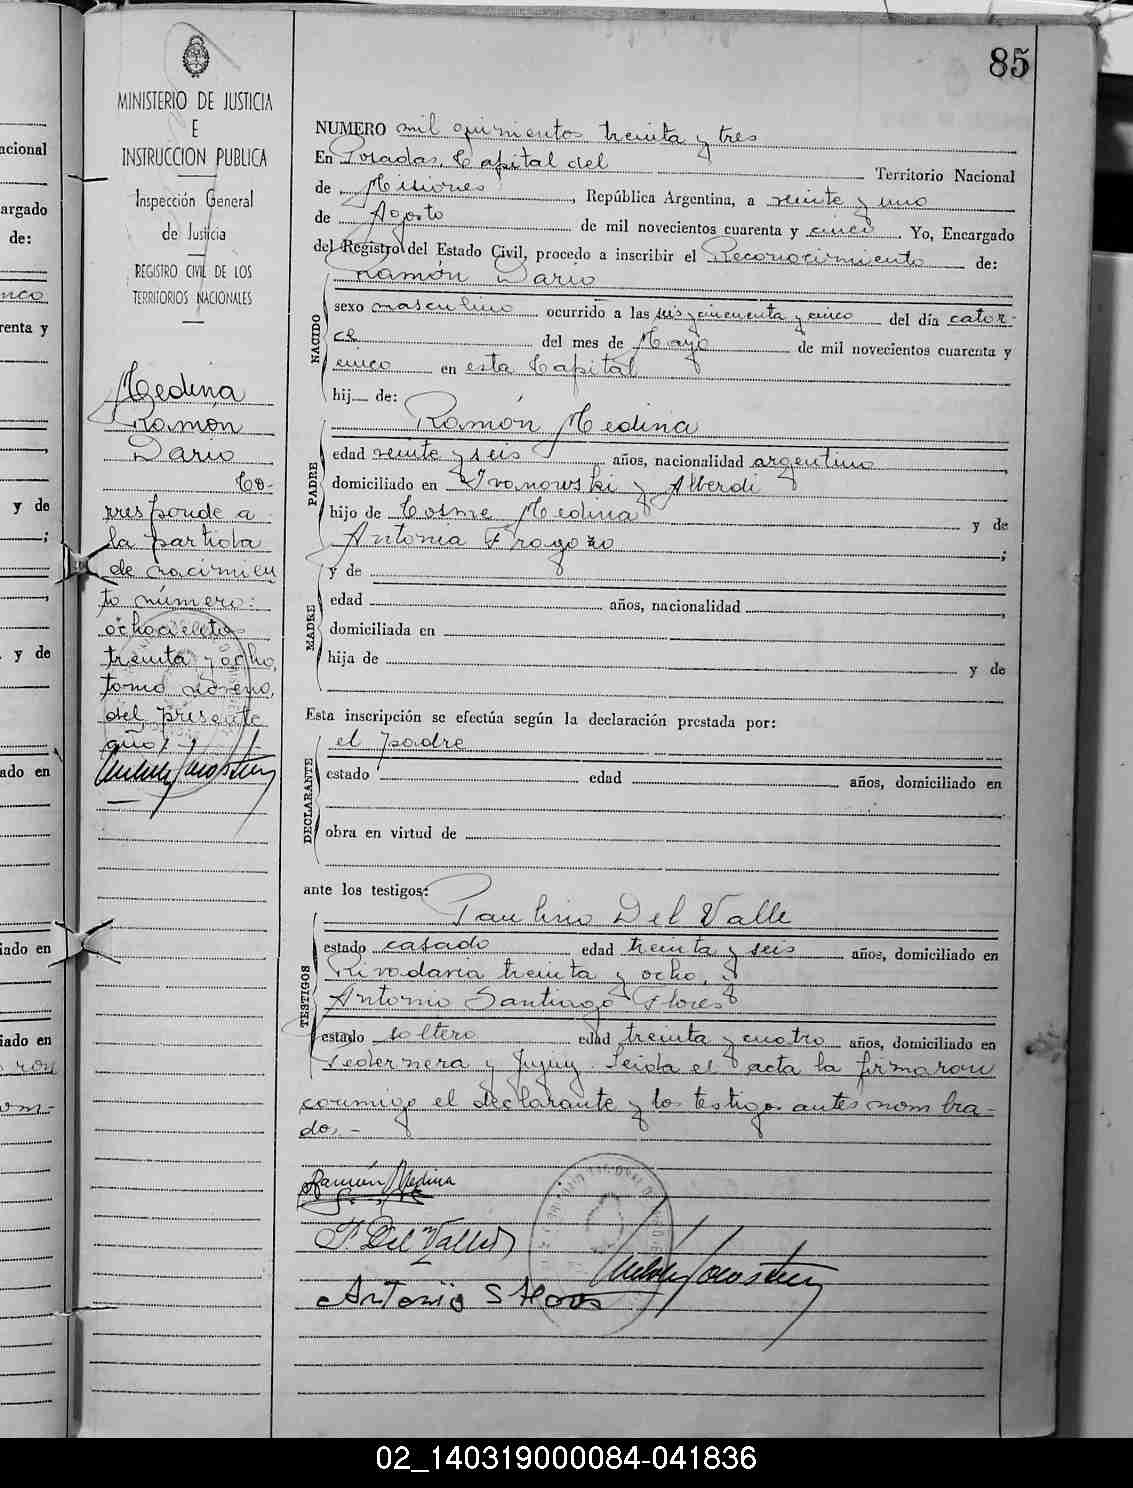 85
MINISTERIO DE JUSTICIA
E
INSTRUCCION PUBLICA
Inspección General
de Justicia
REGISTRO CIVIL DE LOS
TERRITORIOS NACIONALES
Medina
Ramón
Dario
Co-
rresponde a
la partida
de nacimien
to número:
ochocientos
treinta y ocho,
tomo noveno,
del presente
año.
NUMERO mil quinientos treinta y tres
En Posadas, Capital del Territorio Nacional
de Misiones, República Argentina, a veinte y uno
de Agosto de mil novecientos cuarenta y cinco. Yo, Encargado
del Registro del Estado Civil, procedo a inscribir el Reconocimiento de:
Ramón Dario
NACIDO
sexo masculino ocurrido a las seis y cincuenta y cinco del día cator-
ce del mes de Mayo de mil novecientos cuarenta y
cinco en esta Capital
hij de:
PADRE
Ramón Medina
edad veinte y seis años, nacionalidad argentino
domiciliado en Ivanowski y Alberdi
hijo de Cosme Medina y de
Antonia Fragozo ;
MADRE
y de
edad años, nacionalidad
domiciliada en
hija de y de
Esta inscripción se efectúa según la declaración prestada por:
DECLARANTE
el padre
estado edad años, domiciliado en
obra en virtud de
ante los testigos:
TESTIGOS
Paulino Del Valle
estado casado edad treinta y seis años, domiciliado en
Rivadavia treinta y ocho, y
Antonio Santiago Flores
estado soltero edad treinta y cuatro años, domiciliado en
Pedernera y Jujuy. Leida el acta la firmaron
conmigo el declarante y los testigos antes nombra-
dos.-
Ramón Medina
P. Del Valle
Antonio S Flores
acional
argado
de:
nco
renta y
y de
;
y de
ado en
iado en
iado en
ron
om-
02_140319000084-041836